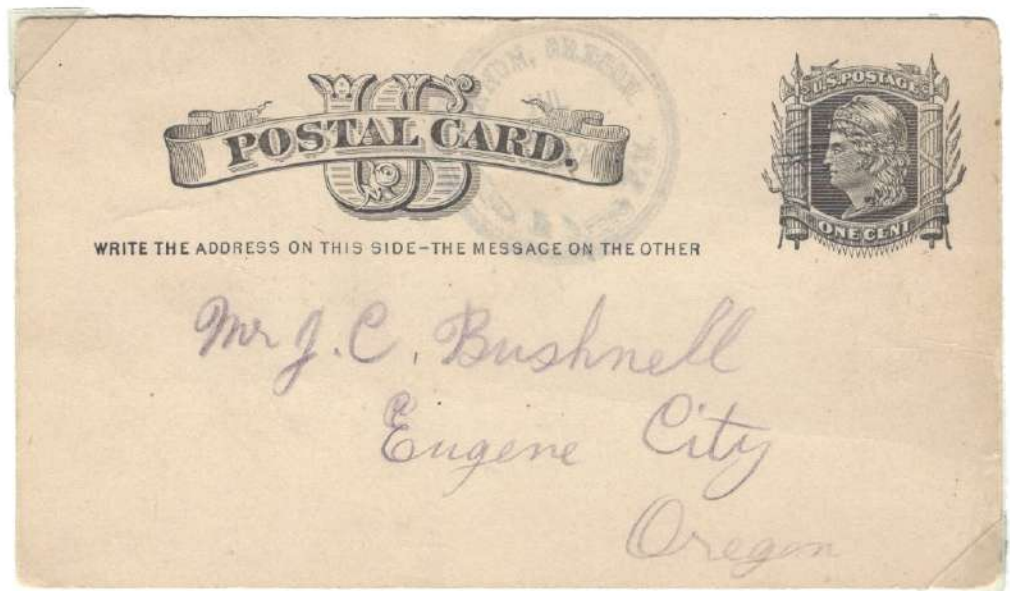 US
POSTAL CARD.
U.S. POSTAGE
ONE CENT
WRITE THE ADDRESS ON THIS SIDE-THE MESSAGE ON THE OTHER
Mr J. C. Bushnell
Eugene City
Oregon